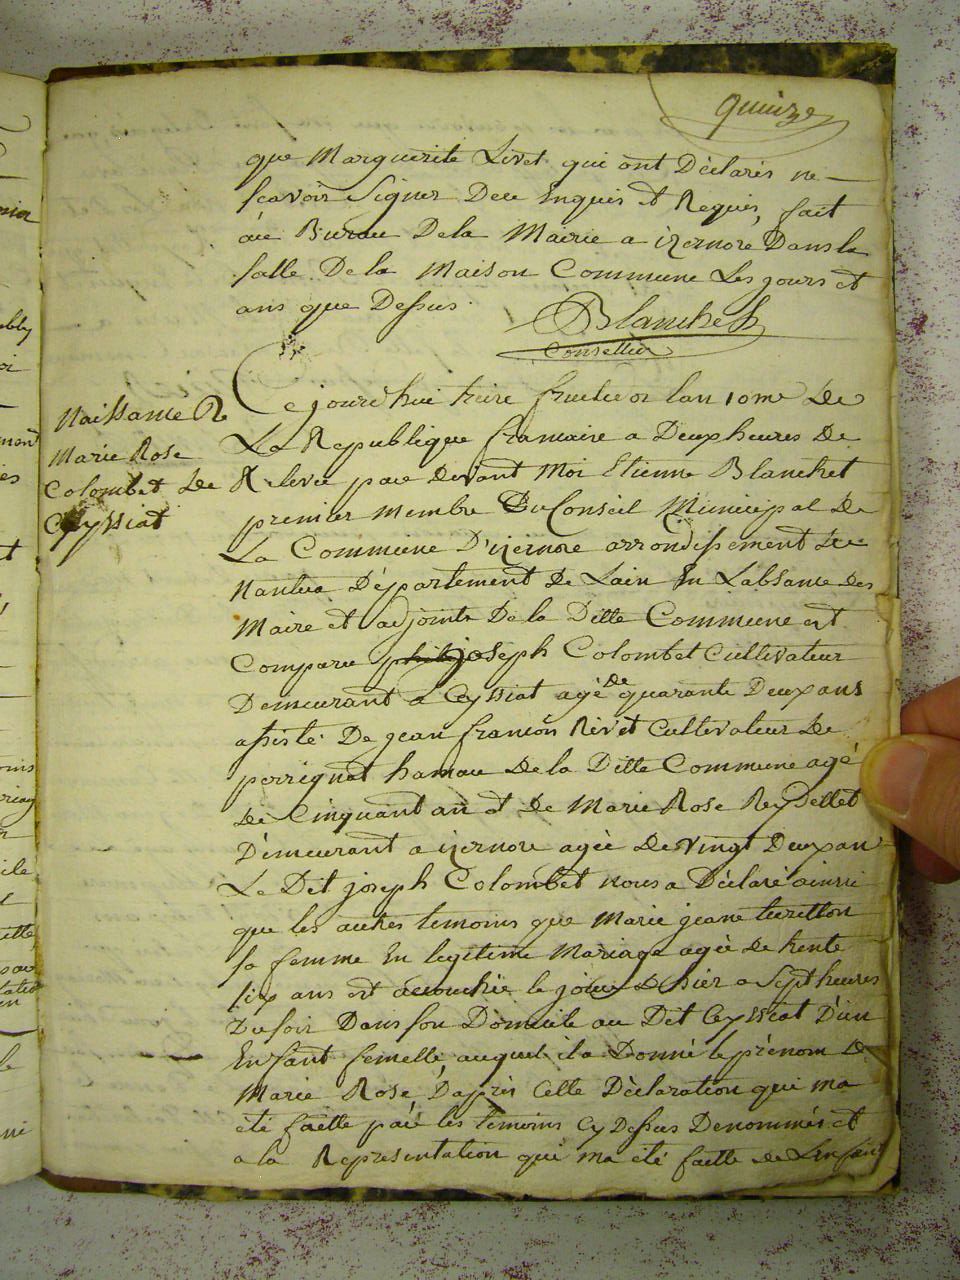 quinze
que Marguerite Livet qui ont Déclarés ne
scavoir Signer De ce Enquis et Requis, fait
au Bureau De la Mairie a izernore Dans la
salle De la Maison Commune Les jours et
ans que Dessus
Blanchet
Conseiller
Naissance De
Marie Rose
Colombet de
Ceyssiat
Ce jourd'hui treize fructidor lan 10me De
La Republique francaise a Deux heures De
Relevée par devant Moi Etienne Blanchet
premier Membre Du Conseil Municipal De
La Commune D'izernore arrondissement De
Nantua Département De Lain En Labsance des
Maire et adjoints De la Ditte Commune est
Comparu joseph Colombet Cultivateur
Demeurant a Ceyssiat agé de quarante Deux ans
assisté De jean francois Rivet Cultivateur De
perrignat hamau De la Ditte Commune agé
de Cinquant an et De Marie Rose Reydellet
Démeurant a izernore agée De vingt Deux an
Le Dit joseph Colombet nous a Déclaré ainsi
que les autres temoins que Marie jeane
sa femme En legitime Mariage agée de trente
six ans est acouchée le jour de hier a Sept heures
Du soir Dans son Domicile au Dit Ceyssiat D'un
Enfant femelle auquel il a Donné le prénom De
Marie Rose D'après Cette Déclaration qui ma
été faitte par les temoins Cy Dessus Denommés et
a la Representation qui ma été faitte de Lenfant